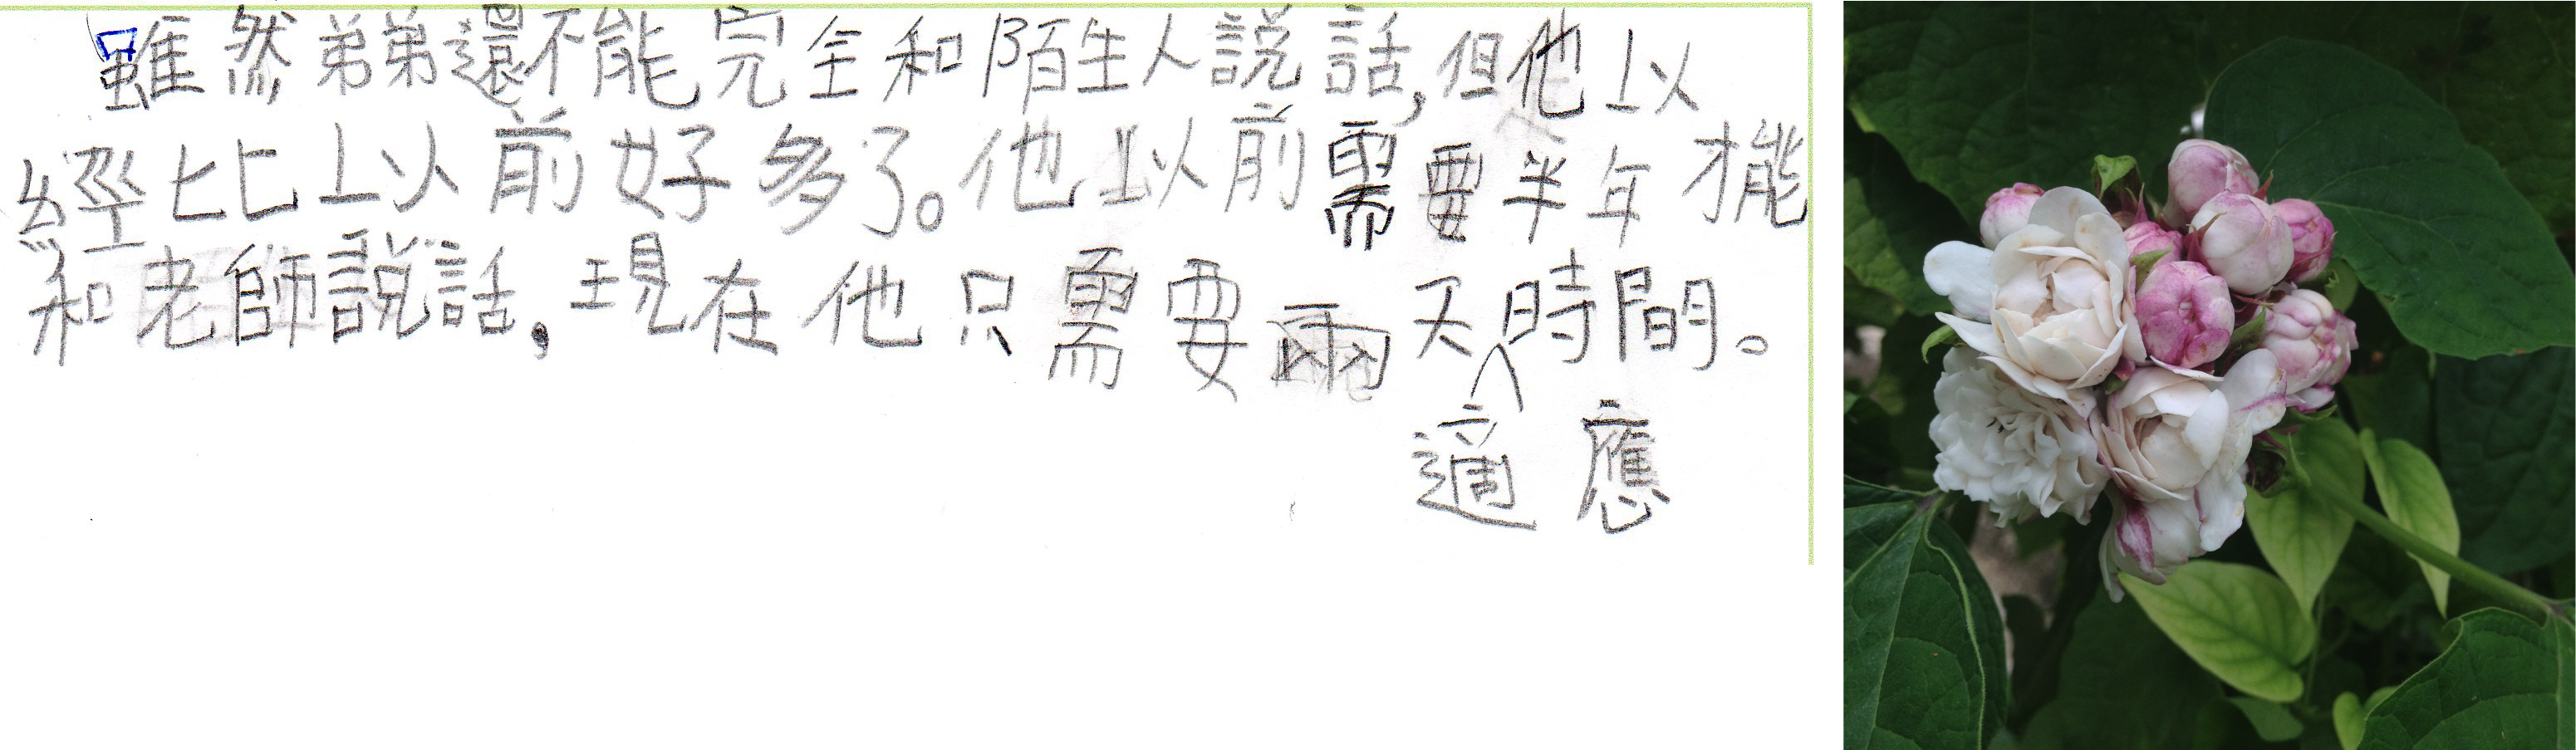 雖然弟弟還不能完全和陌生人說話,但他以
經比以前好多了。他以前需要半年才能
和老師說話,現在他只需要兩天時間。
適應